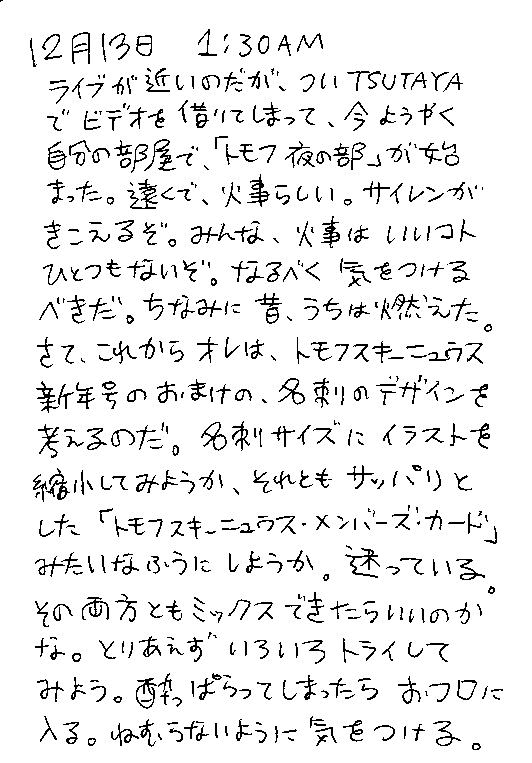 12月13日 1:30AM
ライブが近いのだが、ついTSUTAYA
でビデオを借りてしまって、今ようやく
自分の部屋で、「トモフ夜の部」が始
まった。遠くで、火事らしい。サイレンが
きこえるぞ。みんな、火事はいいコト
ひとつもないぞ。なるべく気をつける
べきだ。ちなみに昔、うちは燃えた。
さて、これからオレは、トモフスキーニュウス
新年号のおまけの、名刺のデザインを
考えるのだ。名刺サイズにイラストを
縮小してみようか、それともサッパリと
した「トモフスキーニュウス・メンバーズ・カード」
みたいなふうにしようか。迷っている。
その両方ともミックスできたらいいのか
な。とりあえずいろいろトライして
みよう。酔っぱらってしまったらおフロに
入る。ねむらないように気をつける。